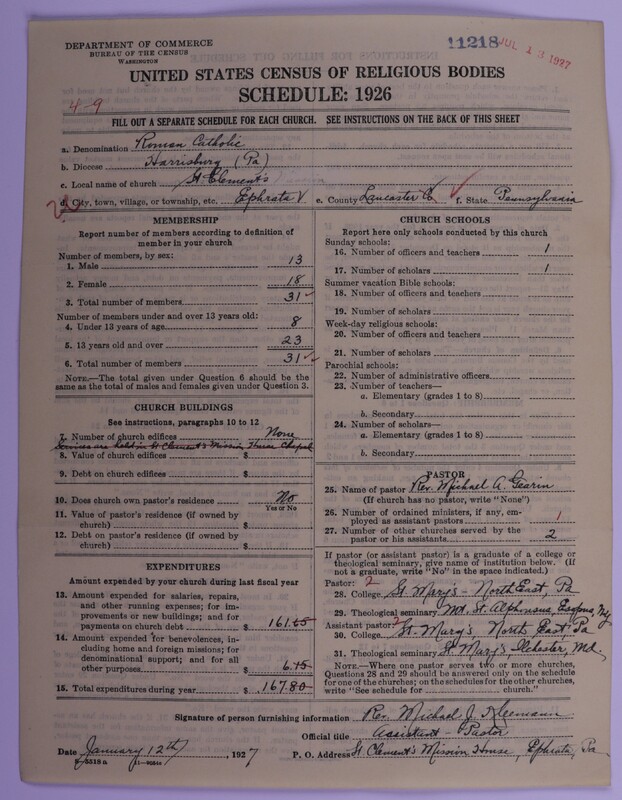 DEPARTMENT OF COMMERCE
BUREAU OF THE CENSUS
WASHINGTON
11218
JUL 1 1927
UNITED STATES CENSUS OF RELIGIOUS BODIES
SCHEDULE: 1926
4-9
FILL OUT A SEPARATE SCHEDULE FOR EACH CHURCH. SEE INSTRUCTIONS ON THE BACK OF THIS SHEET
a. Denomination Roman Catholic
b. Diocese Harrisburg (Pa)
c. Local name of church St. Clement's
d. City, town, village, or township, etc. Ephrata e. County Lancaster Co. f. State Pennsylvania
MEMBERSHIP
Report number of members according to definition of
member in your church
Number of members, by sex:
1. Male 13
2. Female 18
3. Total number of members 31
Number of members under and over 13 years old:
4. Under 13 years of age 8
5. 13 years old and over 23
6. Total number of members 31
NOTE.—The total given under Question 6 should be
the same as the total of males and females given under Question 3.
CHURCH BUILDINGS
See instructions, paragraphs 10 to 12
7. Number of church edifices None
Services are held in St Clement's Mission House Chapel
8. Value of church edifices $
9. Debt on church edifices $
10. Does church own pastor's residence No
Yes or No
11. Value of pastor's residence (if owned by
church) $
12. Debt on pastor's residence (if owned by
church) $
EXPENDITURES
Amount expended by your church during last fiscal year
13. Amount expended for salaries, repairs,
and other running expenses; for im-
provements or new buildings; and for
payments on church debt $ 161.65
14. Amount expended for benevolences,
including home and foreign missions; for
denominational support; and for all
other purposes $ 6.15
15. Total expenditures during year $ 167.80
CHURCH SCHOOLS
Report here only schools conducted by this church
Sunday schools:
16. Number of officers and teachers 1
17. Number of scholars 1
Summer vacation Bible schools:
18. Number of officers and teachers
19. Number of scholars
Week-day religious schools:
20. Number of officers and teachers
21. Number of scholars
Parochial schools:
22. Number of administrative officers
23. Number of teachers—
a. Elementary (grades 1 to 8)
b. Secondary
24. Number of scholars—
a. Elementary (grades 1 to 8)
b. Secondary
PASTOR
25. Name of pastor Rev. Michael A. Gearin
(If church has no pastor, write "None")
26. Number of ordained ministers, if any, em-
ployed as assistant pastors 1
27. Number of other churches served by the
pastor or his assistants 2
If pastor (or assistant pastor) is a graduate of a college or
theological seminary, give name of institution below. (If
not a graduate, write "No" in the space indicated.)
Pastor: 2
28. College St. Mary's - North East, Pa
29. Theological seminary Mt. St. Alphonsus, Esopus, N.Y.
Assistant pastor: 2
30. College St. Mary's, North East, Pa
31. Theological seminary St Mary's Ilchester, Md.
NOTE.—Where one pastor serves two or more churches,
Questions 28 and 29 should be answered only on the schedule
for one of the churches; on the schedules for the other churches,
write "See schedule for church."
Signature of person furnishing information Rev. Michael J. Kleemann
Official title Assistant - Pastor
Date January 12th, 1927 P. O. Address St Clement's Mission House, Ephrata, Pa.